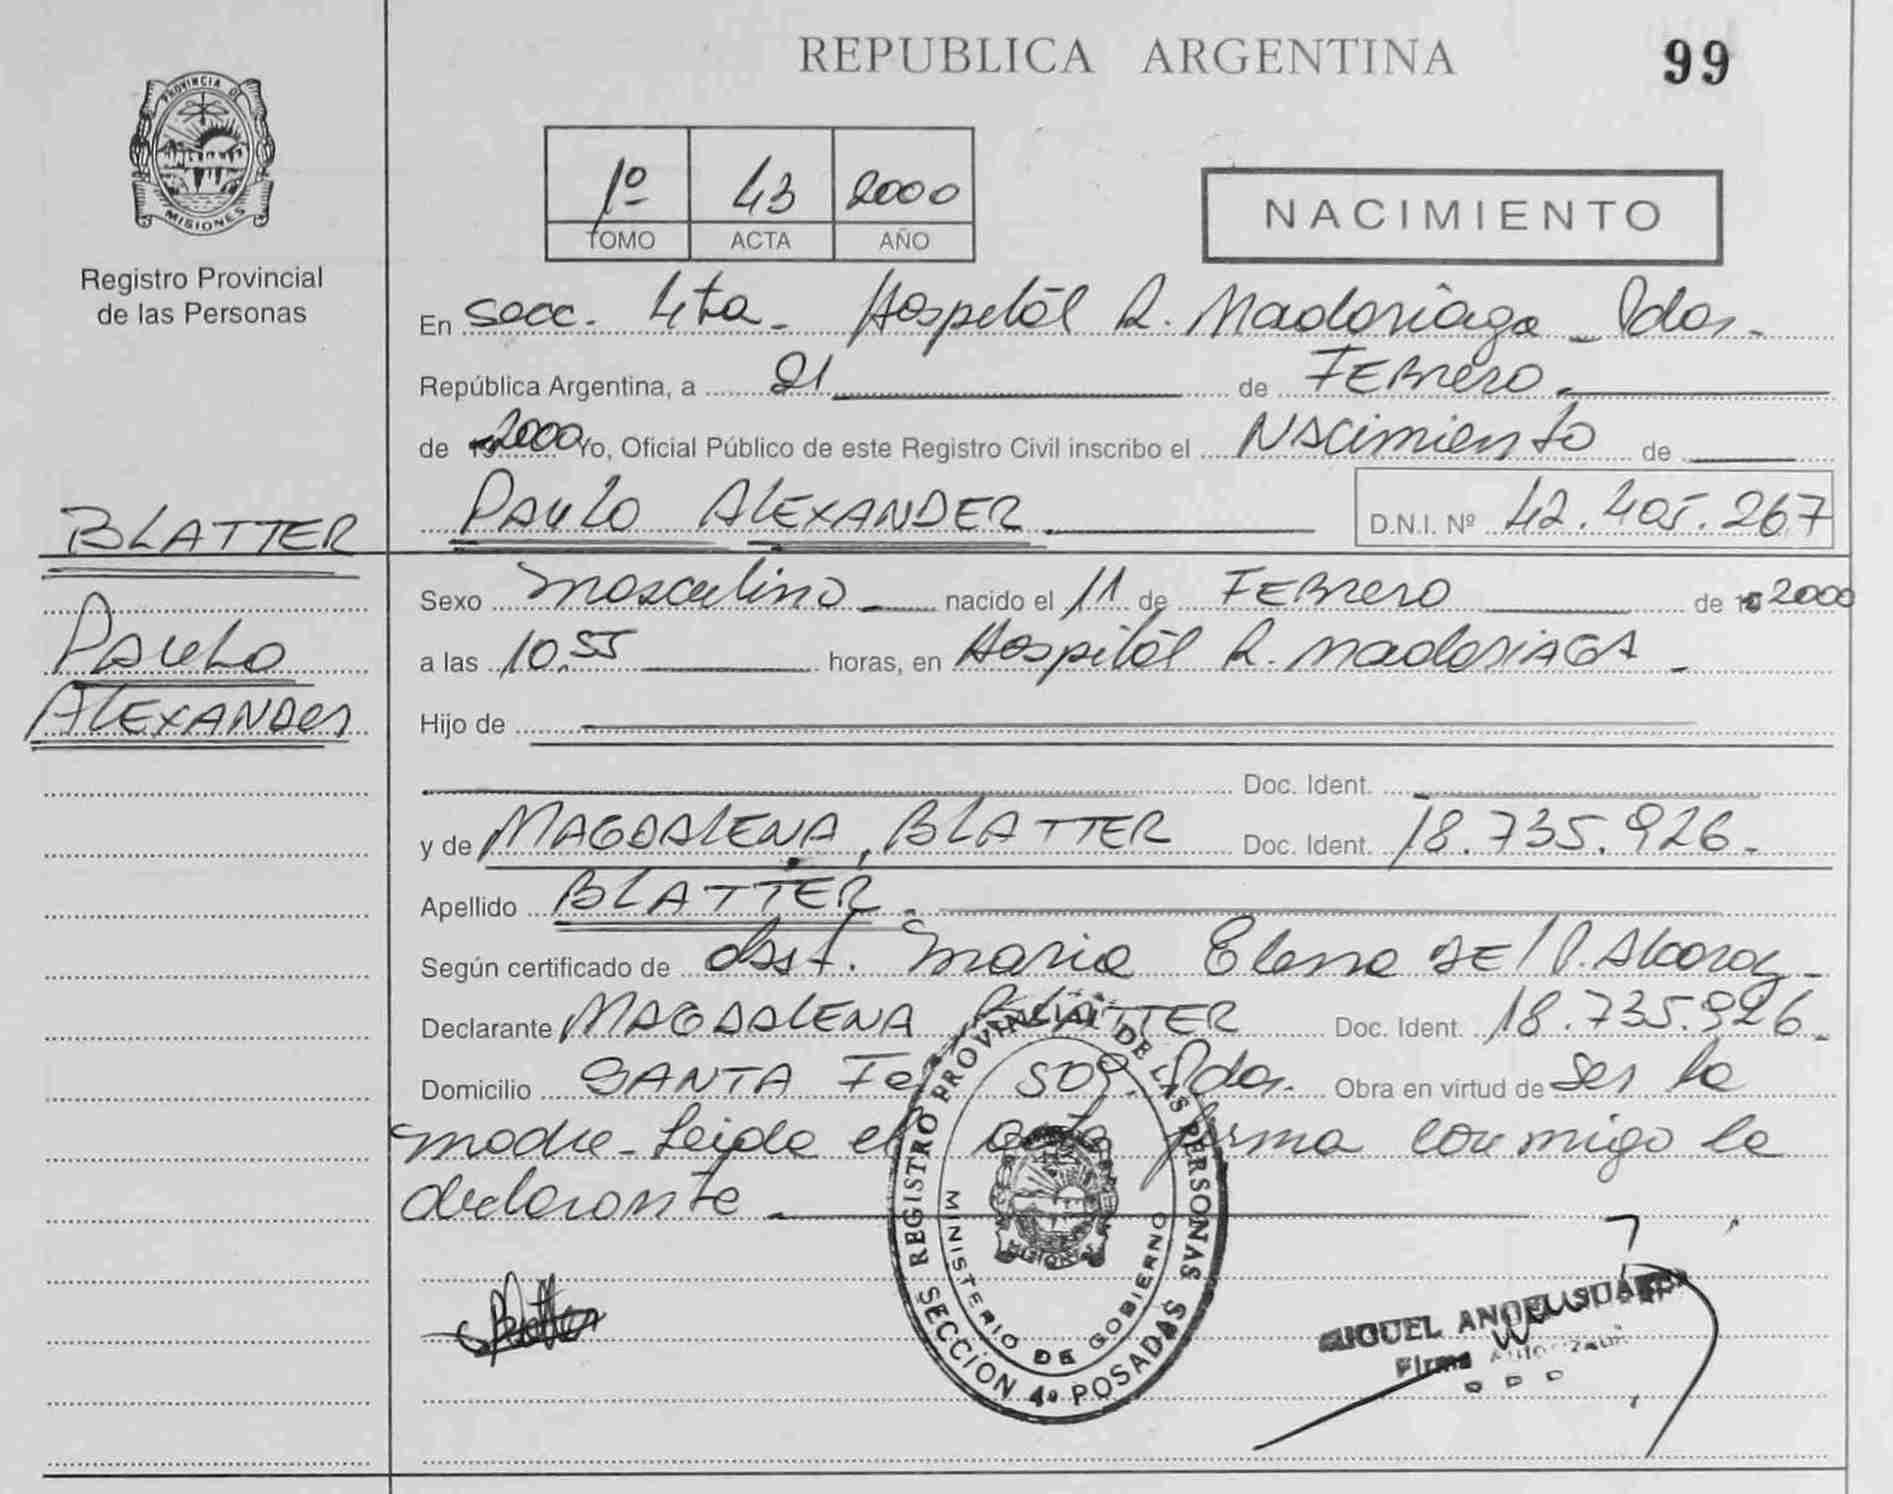 REPUBLICA ARGENTINA
99
PROVINCIA DE
MISIONES
Registro Provincial
de las Personas
1º 43 2000
TOMO ACTA AÑO
NACIMIENTO
En Secc. 4ta - Hospitál R. Madariaga - Pdas.
República Argentina, a 21 de FEBrero.
de 2000 Yo, Oficial Público de este Registro Civil inscribo el NAcimiento de
PAULO ALEXANDER
D.N.I. Nº 42.405.267
BLATTER
PAULO
ALEXANDer
Sexo masculino nacido el 11 de FEBrero de 2000
a las 10.55 horas, en Hospitál R. madariAGA -
Hijo de
Doc. Ident.
y de MAGDALENA, BLATTER Doc. Ident. 18.735.926.
Apellido BLATTER.
Según certificado de obst. Maria Elena DE
Declarante MAGDALENA BLATTER Doc. Ident. 18.735.926.
Domicilio SANTA Fe 509, Pdas. Obra en virtud de ser la
madre - Leida el acta firma conmigo la
declarante
Blatter
REGISTRO PROVINCIAL DE LAS PERSONAS
MINISTERIO DE GOBIERNO
SECCION 4ª POSADAS
MISIONES
MIGUEL ANGEL SUAREZ
Firma Autorizada